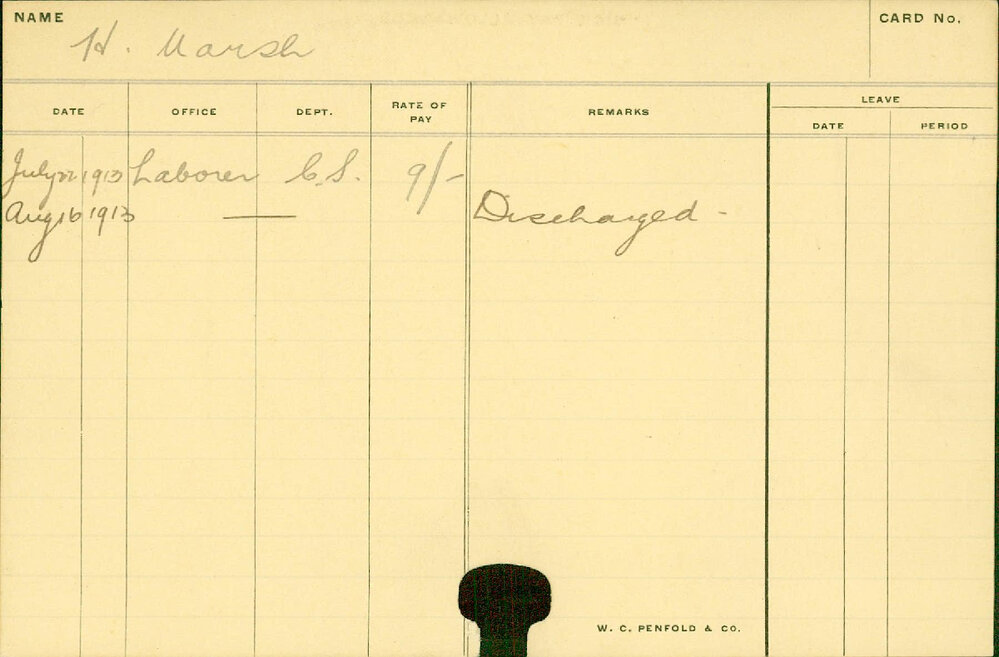 NAME CARD No.
H. Marsh
LEAVE
DATE OFFICE DEPT. RATE OF PAY REMARKS DATE PERIOD
July 22 1913 Laborer C.S. 9/-
Aug 16 1913 — Discharged -
W. C. PENFOLD & CO.